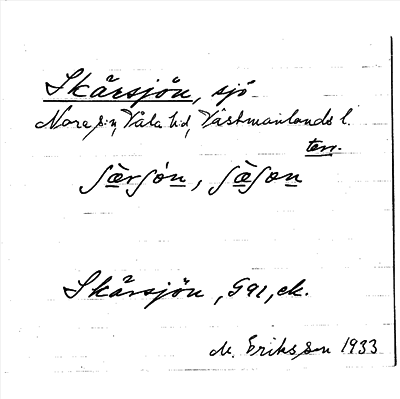 Skärsjön, sjö
Nora s:n, Våla hd, Västmanlands l.
terr.
ʃæ̀rʃo̱ṉ, ʃæ̀ʃoṉ
Skärsjön, G 91, ek.
M. Eriksson 1933